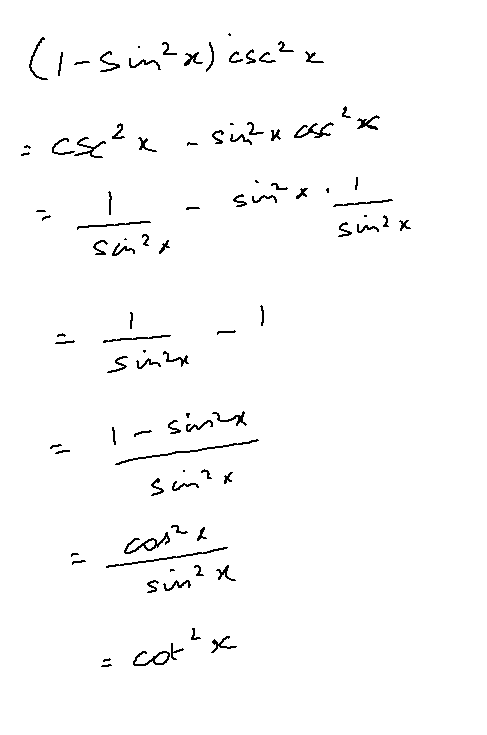 (1 - sin²x) csc² x
= csc² x - sin² x csc² x
= 1/sin² x - sin² x · 1/sin² x
= 1/sin²x - 1
= (1 - sin²x)/sin² x
= cos² x/sin² x
= cot² x